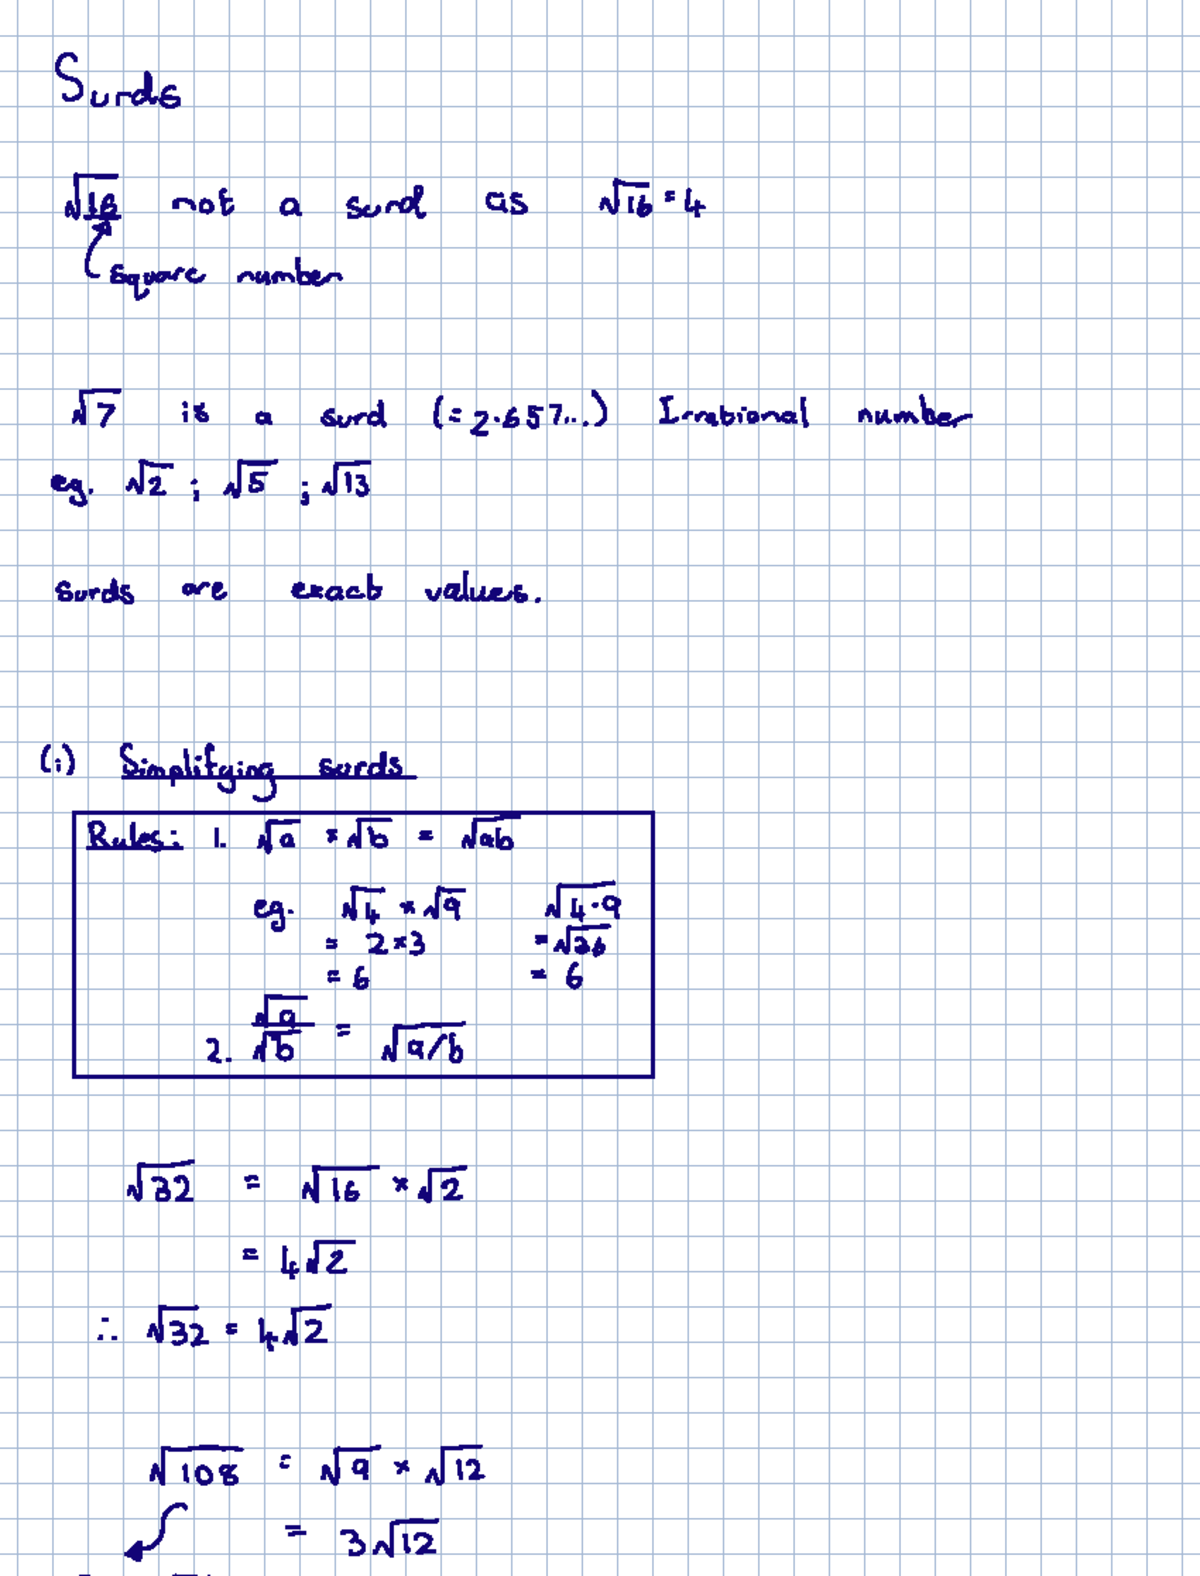 Surds
√16 not a surd as √16 = 4
square number
√7 is a surd (= 2.657...) Irrational number
eg. √2 ; √5 ; √13
surds are exact values.
(i) Simplifying surds
Rules: 1. √a × √b = √ab
eg. √4 × √9 √4·9
= 2×3 = √36
= 6 = 6
2. √a/√b = √a/b
√32 = √16 × √2
= 4√2
∴ √32 = 4√2
√108 = √9 × √12
= 3√12